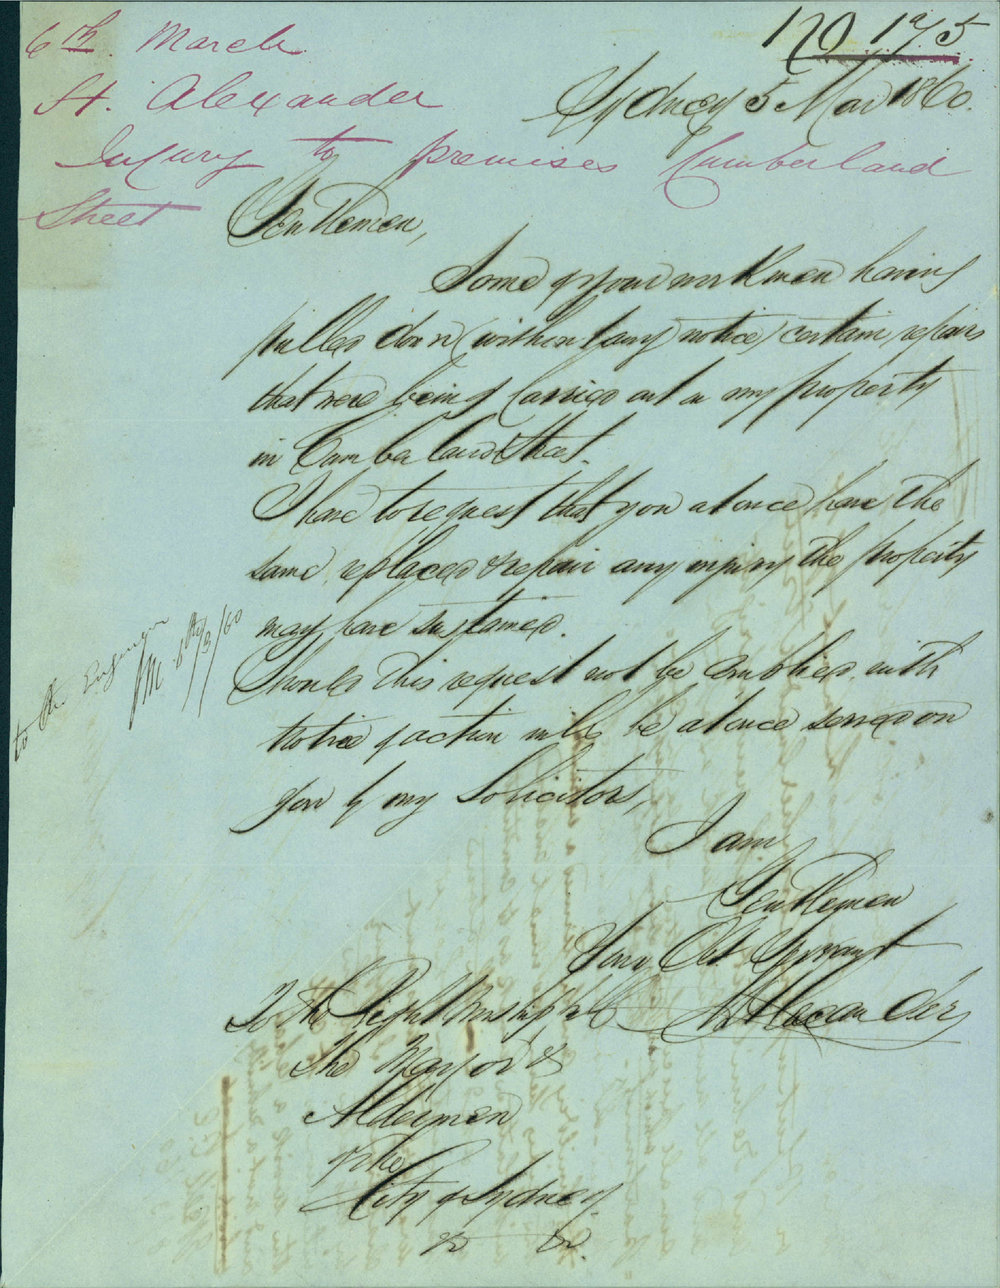 6th March
H. Alexander
Injury to premises Cumberland
Street
175
Sydney 5 Mar 1860.
Gentlemen,
Some of your workmen having
pulled down (without any notice) certain repairs
that were being carried out on my property
in Cumberland Street.
I have to request that you at once have the
same replaced & repair any injury the property
may have sustained.
Should this request not be complied with
notice of action will be at once served on
you by my Solicitors,
I am
Gentlemen
Your Obt Servant
H Alexander
To the Right Worshipful
The Mayor &
Aldermen
of the
City of Sydney
&c &c.
to the Engineer
6th/3/60